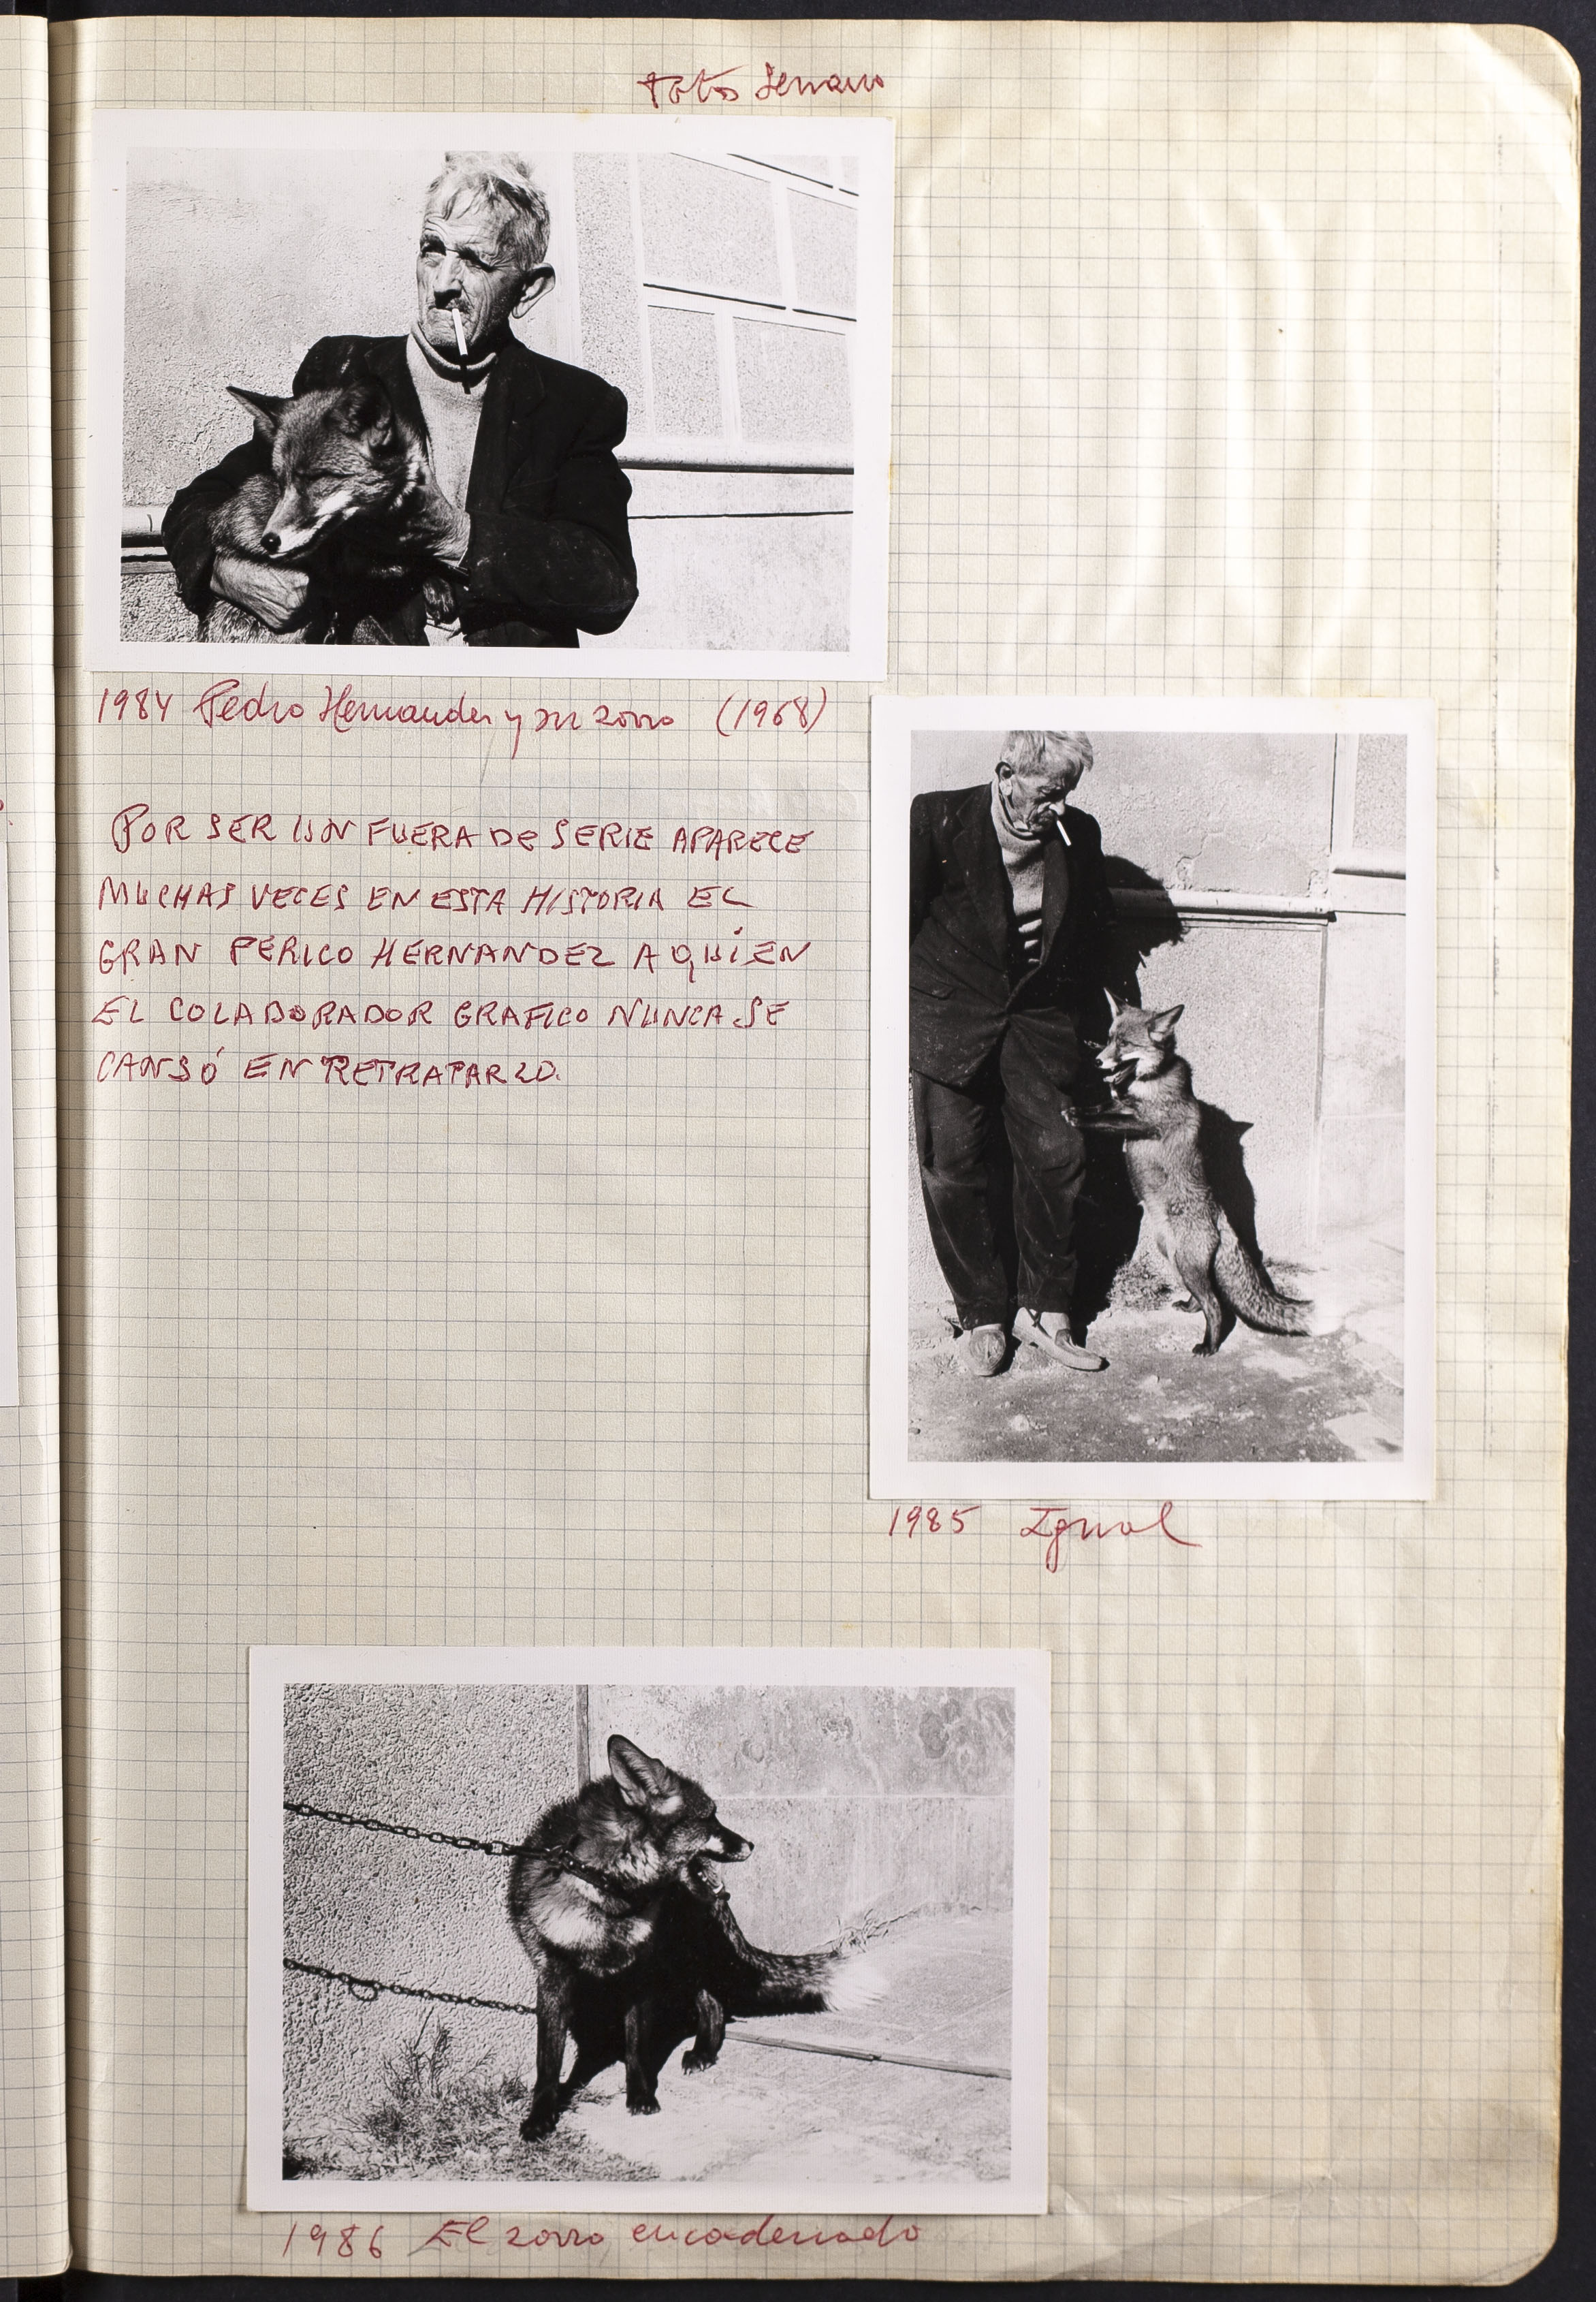 Fotos Serrano
1984 Pedro Hernandez y su zorro (1968)
POR SER UN FUERA DE SERIE APARECE
MUCHAS VECES EN ESTA HISTORIA EL
GRAN PERICO HERNANDEZ A QUIEN
EL COLABORADOR GRAFICO NUNCA SE
CANSÓ EN RETRATARLO.
1985 Igual
1986 El zorro encadenado